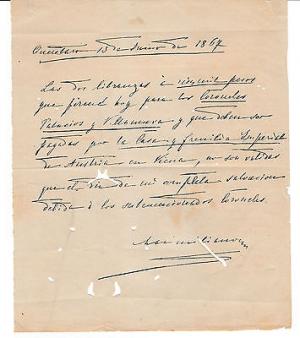 Querétaro 13 de Junio de 1867
Las dos libranzas á cien mil pesos
que firmé hoy para los Coroneles
Palacios y Villanueva y que deben ser
pagadas por la Casa y familia Imperial
de Austria en Viena, no son validas
que el dia de mi completa salvacion
debida á los subsmencionados Coroneles.
Maximiliano